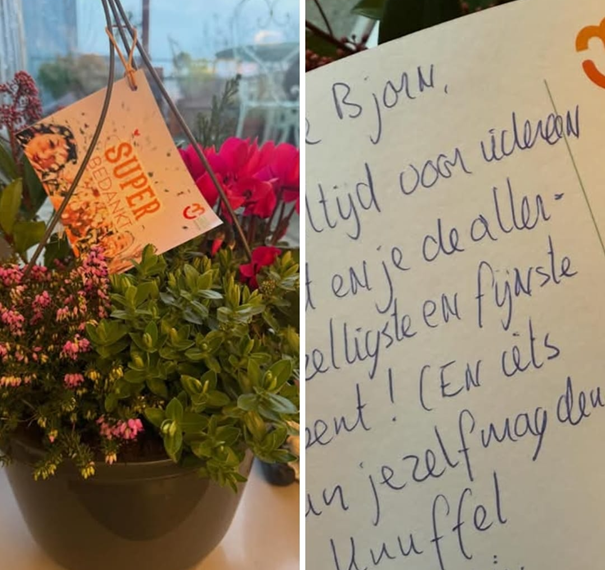 SUPER
BEDANKT
Bjorn,
ltijd voor iedereen
t en je de aller-
elligste en fijnste
bent! (En iets
an jezelf mag den
Knuffel